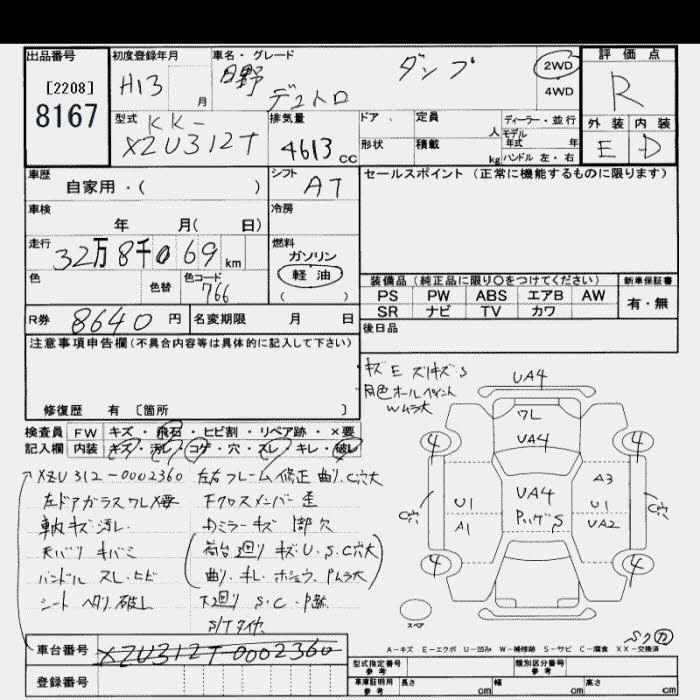 出品番号
[2208]
8167
初度登録年月
H13 月
車名・グレード
日野 デュトロ ダンプ
2WD
4WD
評価点
R
外装 内装
E D
型式
KK-
XZU312T
排気量
4613 cc
ドア
定員 人
形状
積載 kg
ディーラー・並行
モデル年式 年
ハンドル 左・右
車歴
自家用・( )
シフト
AT
車検
年 月( 日)
冷房
走行
32万8千069 km
燃料
ガソリン
軽油
( )
色
色替
色コード
766
セールスポイント (正常に機能するものに限ります)
装備品 (純正品に限り○をつけてください)
新車保証書
PS PW ABS エアB AW
SR ナビ TV カワ
有・無
R券 8640 円
名変期限 月 日
後日品
注意事項申告欄(不具合内容等は具体的に記入して下さい)
修復歴 有 [箇所 ]
検査員 FW キズ・飛石・ヒビ割・リペア跡・×要
記入欄 内装 キズ・汚レ・コゲ・穴・スレ・キレ・破レ
キズE スリキズS
同色オールペイント
Wムラ大
XZU312-0002360
左ドアガラスワレ×要
車内キズ汚レ
天バリ キバミ
ハンドル スレ・ヒビ
シート ヘタリ・破レ
左右フレーム修正 曲リ C穴大
Fクロスメンバー歪
Dミラーキズ 1部欠
荷台廻り キズ・U・S・C穴大
曲リ・キレ・ホシュウ・Pムラ大
下廻り S・C・P跡
S/Tタイヤ
UA4
ワレ
UA4
4
4
UA4
A3
U1
U1
A1
UA2
C穴
C穴
4
4
スペア
A-キズ E-エクボ U-凹み W-補修跡 S-サビ C-腐食 XX-交換済
車台番号 XZU312T-0002360
登録番号
型式指定番号
参考
類別区分番号
参考
車庫証明用
参考
長さ cm
幅 cm
高さ cm